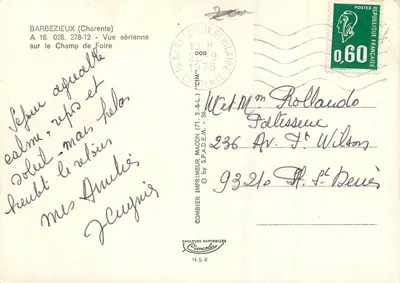 BARBEZIEUX (Charente)
A 16. 028. 278-12 - Vue aérienne
sur le Champ de Foire
Séjour agréable
calme, repos et
soleil - mais hélas
bientôt le retour
mes Amitiés
POSTES
RÉPUBLIQUE FRANÇAISE
0,60
COMBIER IMPRIMEUR MACON (71. S.-&-L.) "CIM"
© by S.P.A.D.E.M.
M et Mme Rollando
236 Av. Pt Wilson
93210 Pl. St Denis
COULEURS NATURELLES
Cimcolor